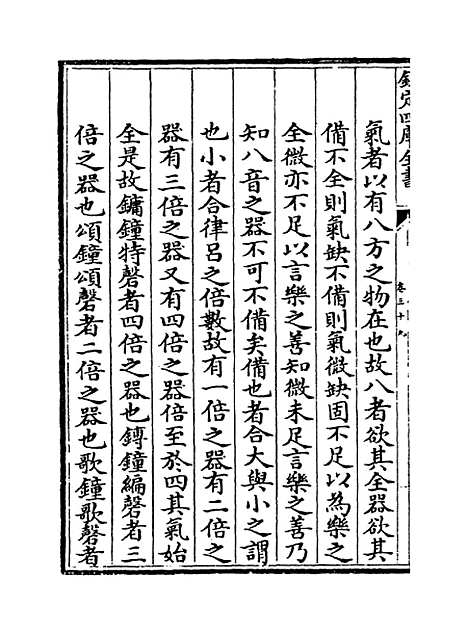 欽定四庫全書
卷三十九
氣者以有八方之物在也故八者欲其全器欲其
備不全則氣缺不備則氣微缺固不足以為樂之
全微亦不足以言樂之善知微未足言樂之善乃
知八音之器不可不備矣備也者合大與小之謂
也小者合律呂之倍數故有一倍之器有二倍之
器有三倍之器又有四倍之器倍至於四其氣始
全是故鏞鐘特磬者四倍之器也鎛鐘編磬者三
倍之器也頌鐘頌磬者二倍之器也歌鐘歌磬者